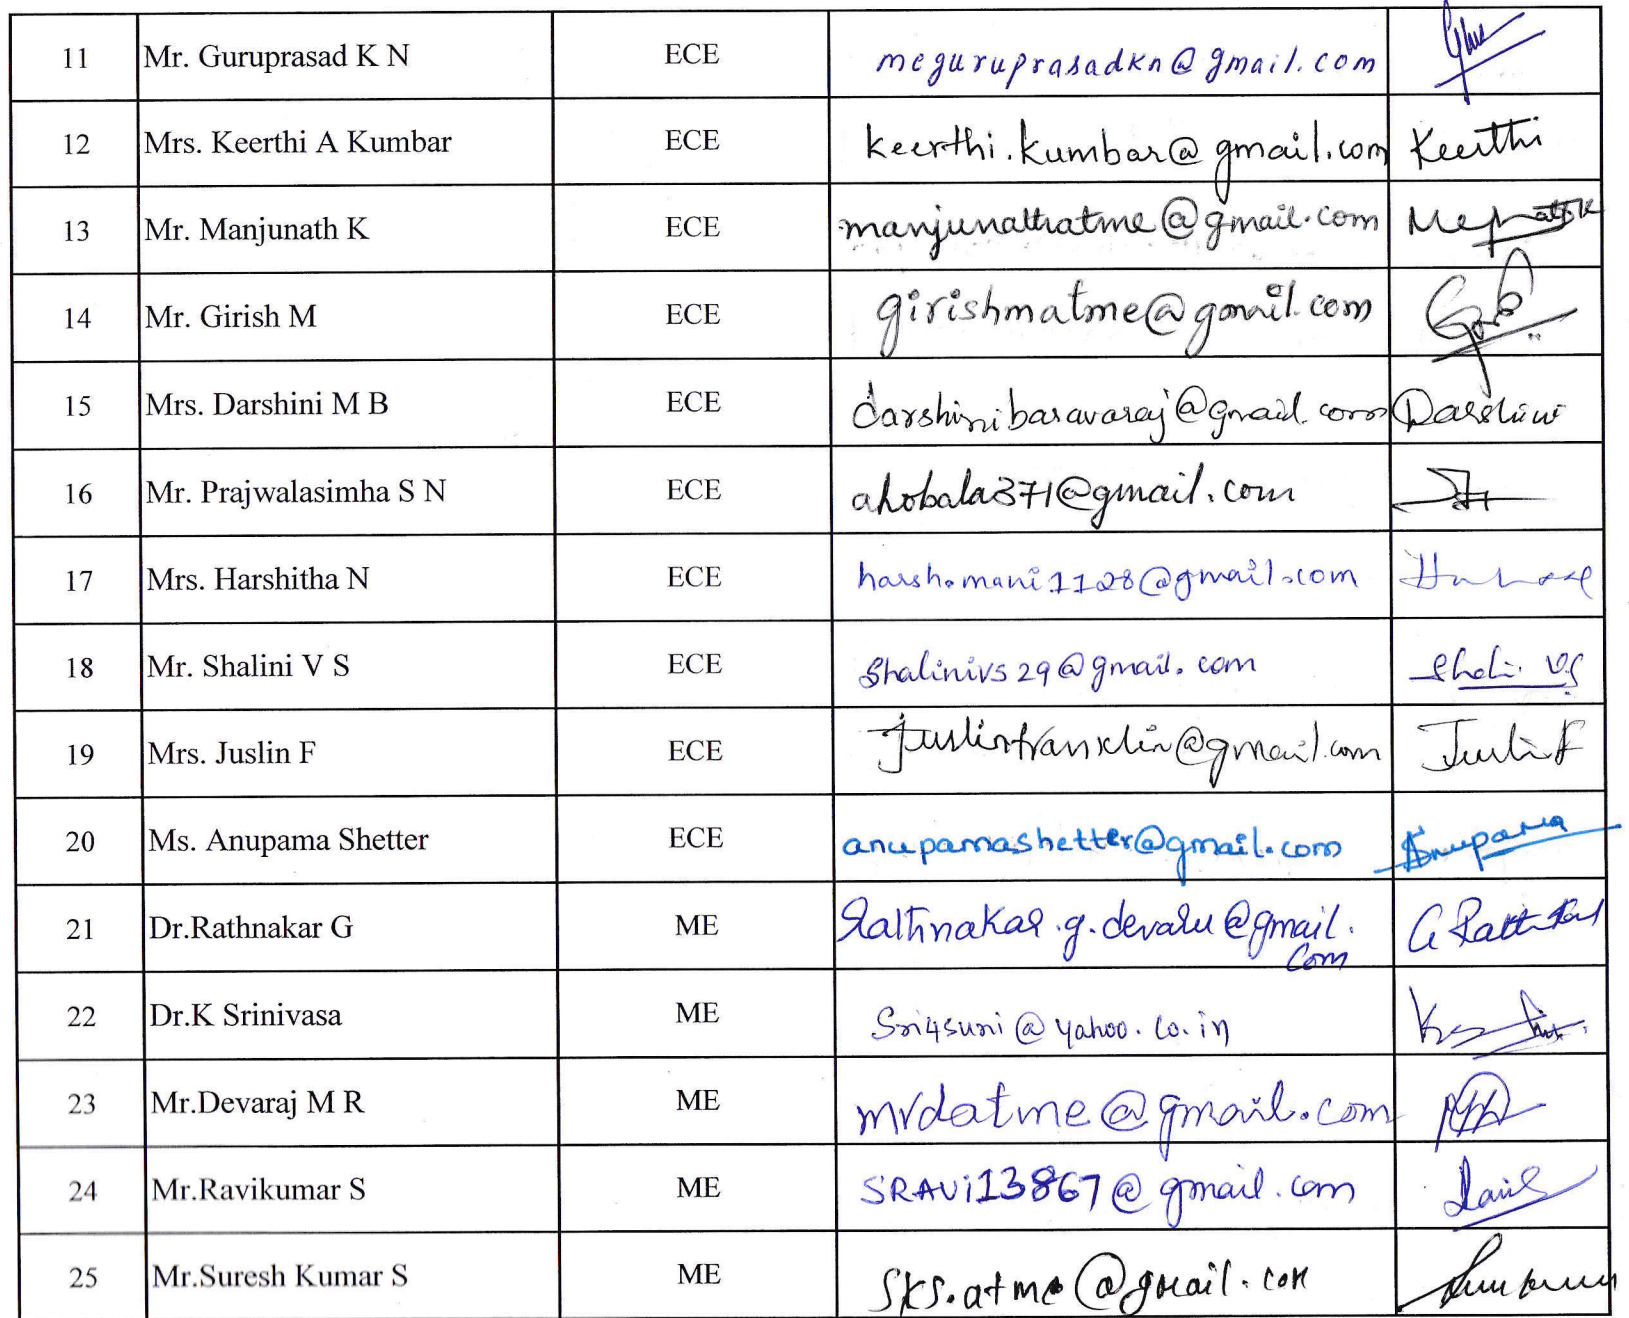 11 Mr. Guruprasad K N ECE meguruprasadkn@gmail.com
12 Mrs. Keerthi A Kumbar ECE keerthi.kumbar@gmail.com Keerthi
13 Mr. Manjunath K ECE manjunathatme@gmail.com
14 Mr. Girish M ECE girishmatme@gmail.com
15 Mrs. Darshini M B ECE darshinibasavaraj@gmail.com Darshini
16 Mr. Prajwalasimha S N ECE ahobala371@gmail.com
17 Mrs. Harshitha N ECE harsh.mani1128@gmail.com
18 Mr. Shalini V S ECE Shalinivs29@gmail.com
19 Mrs. Juslin F ECE Juslinfranklin@gmail.com Juslin F
20 Ms. Anupama Shetter ECE anupamashetter@gmail.com Anupama
21 Dr.Rathnakar G ME Rathnakar.g.devaru@gmail.
com
22 Dr.K Srinivasa ME Sri4suni@yahoo.co.in
23 Mr.Devaraj M R ME mrdatme@gmail.com
24 Mr.Ravikumar S ME SRAVi13867@gmail.com
25 Mr.Suresh Kumar S ME sks.atme@gmail.com